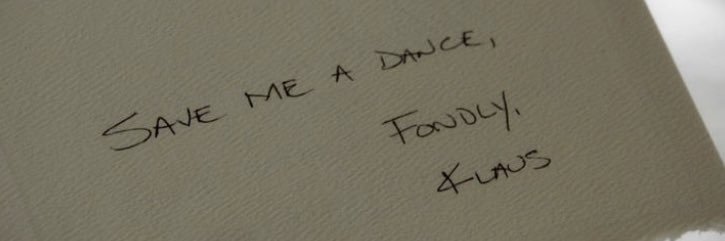 SAVE ME A DANCE,
FONDLY,
KLAUS